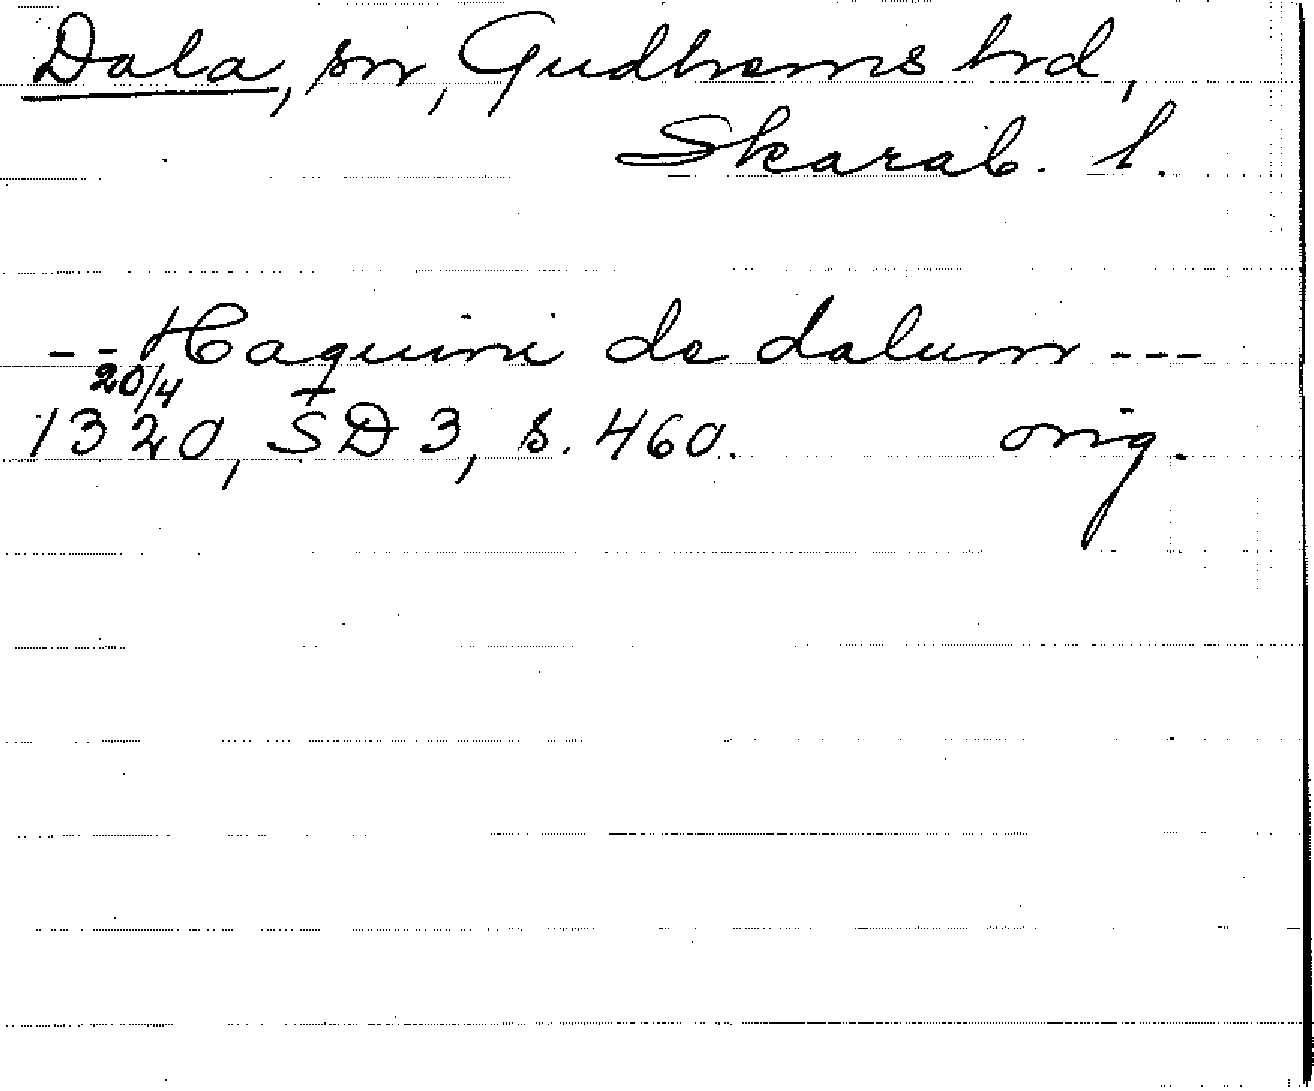 Dala, sn, Gudhems hd,
Skarab. l.
-- Haquini de dalum ---
20/4
1320, SD 3, s. 460. orig.